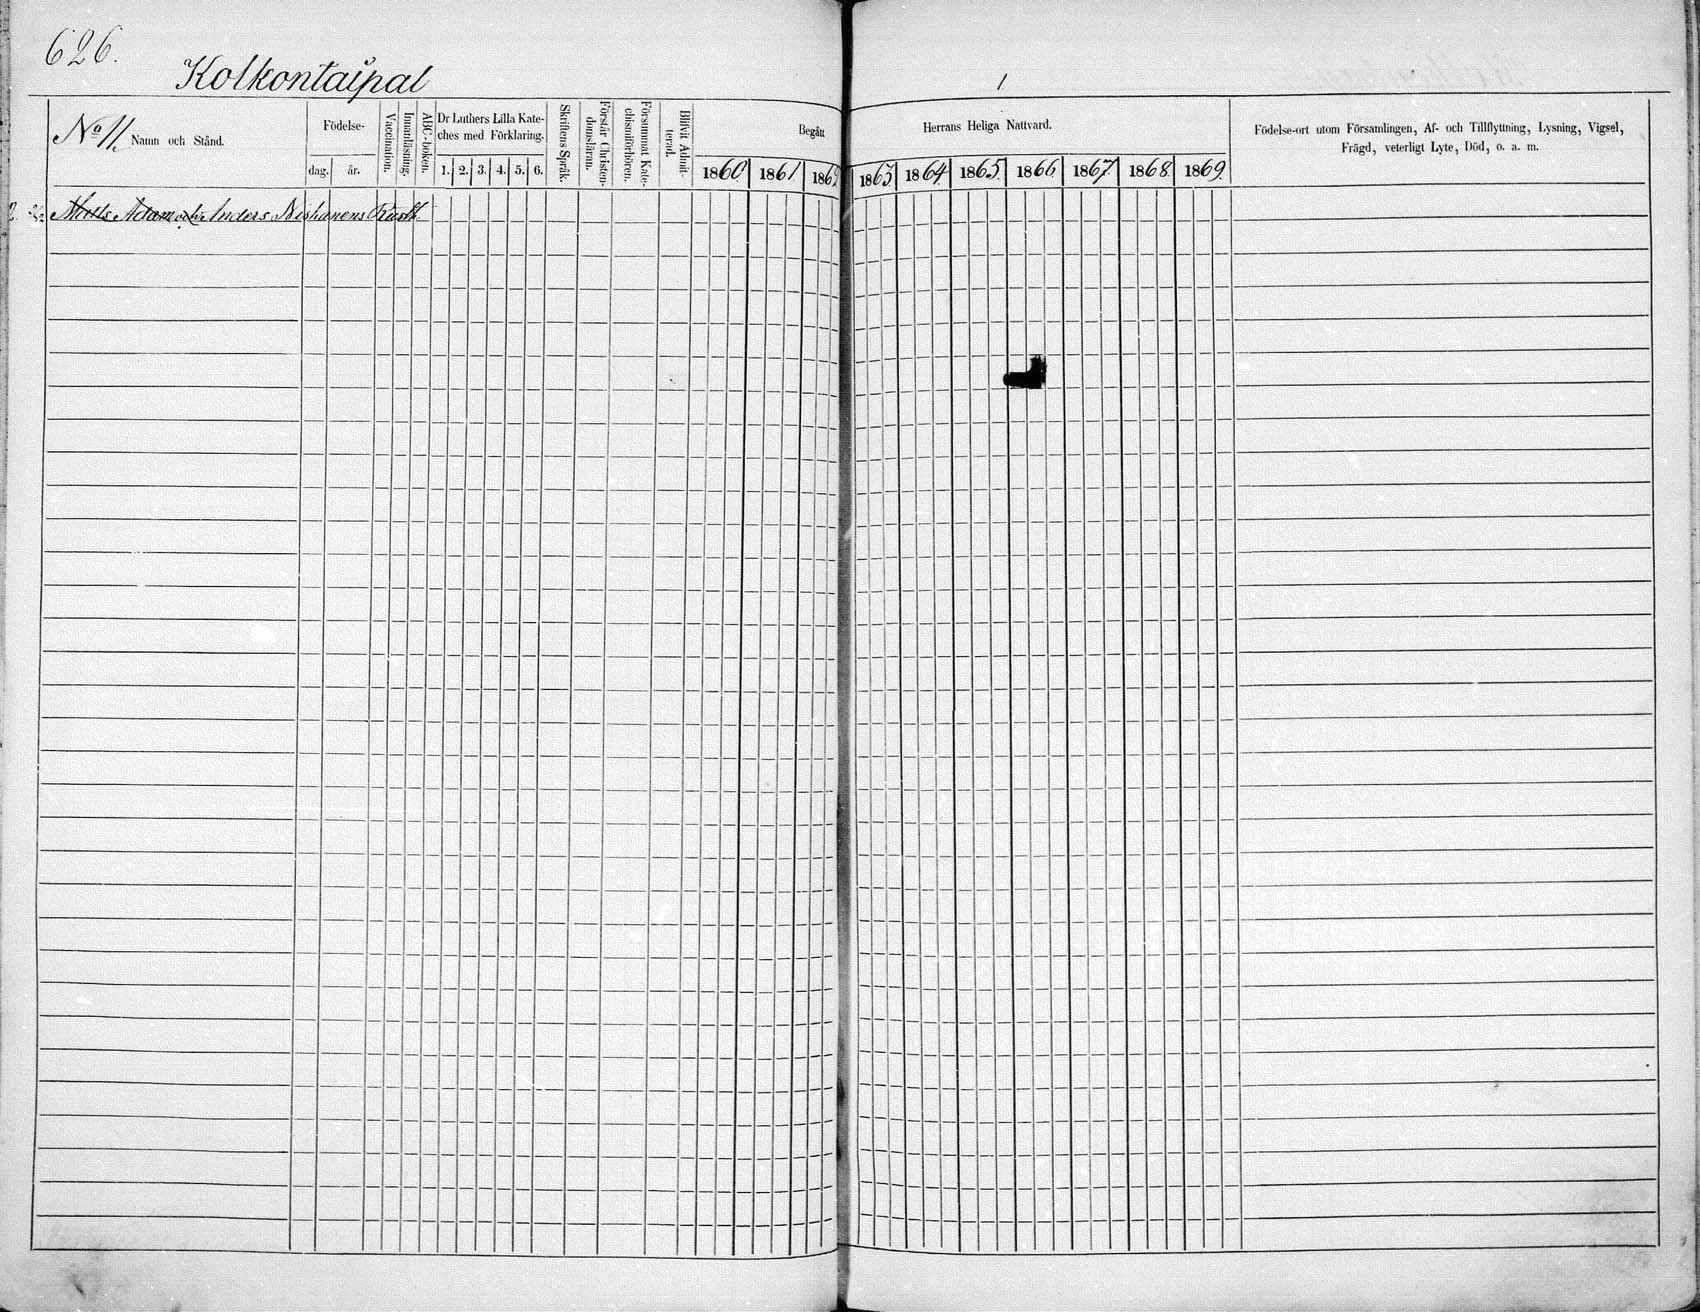 626.
Kolkontaipal
No 11. Namn och Stånd.
Födelse-
dag. år.
Vaccination.
Innanläsning.
ABC-boken.
Dr Luthers Lilla Kate-
ches med Förklaring.
1. 2. 3. 4. 5. 6.
Skriftens Språk.
Förstår Christen-
domsläran.
Försummat Kate-
chismiförhören.
Blifvit Admit-
terad.
Begått
1860 1861 1862
Herrans Heliga Nattvard.
1863. 1864. 1865. 1866. 1867. 1868. 1869.
Födelse-ort utom Församlingen, Af- och Tillflyttning, Lysning, Vigsel,
Frägd, veterligt Lyte, Död, o. a. m.
Matts Adam och Anders